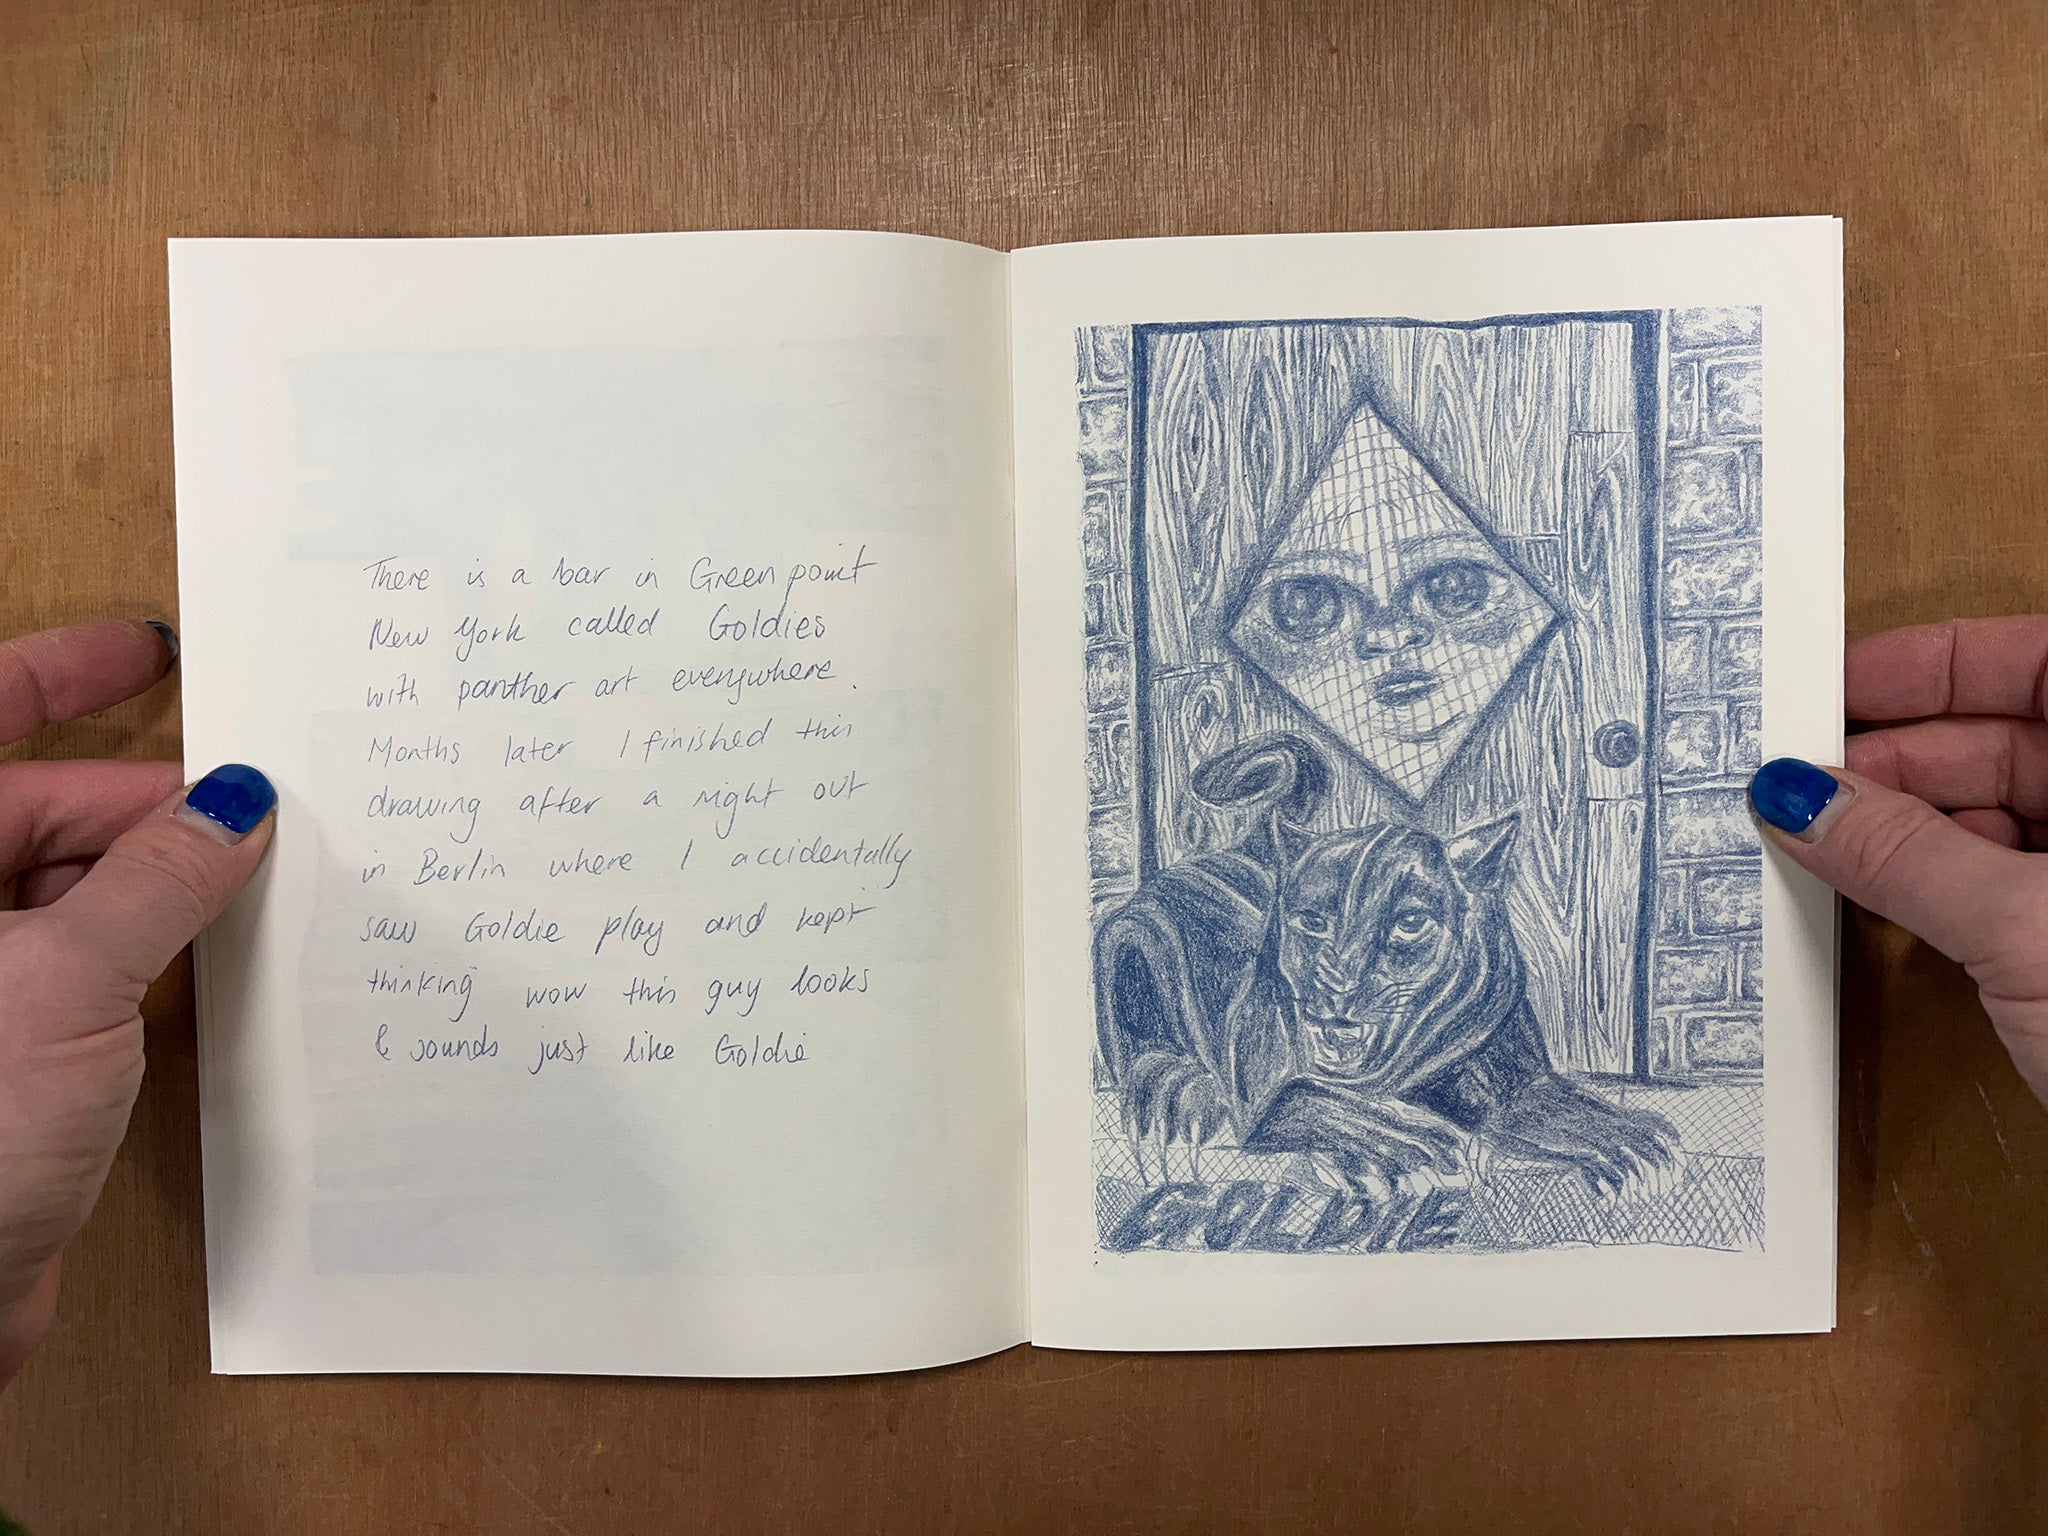 There is a bar in Greenpoint
New York called Goldies
with panther art everywhere.
Months later I finished this
drawing after a night out
in Berlin where I accidentally
saw Goldie play and kept
thinking wow this guy looks
& sounds just like Goldie
GOLDIE